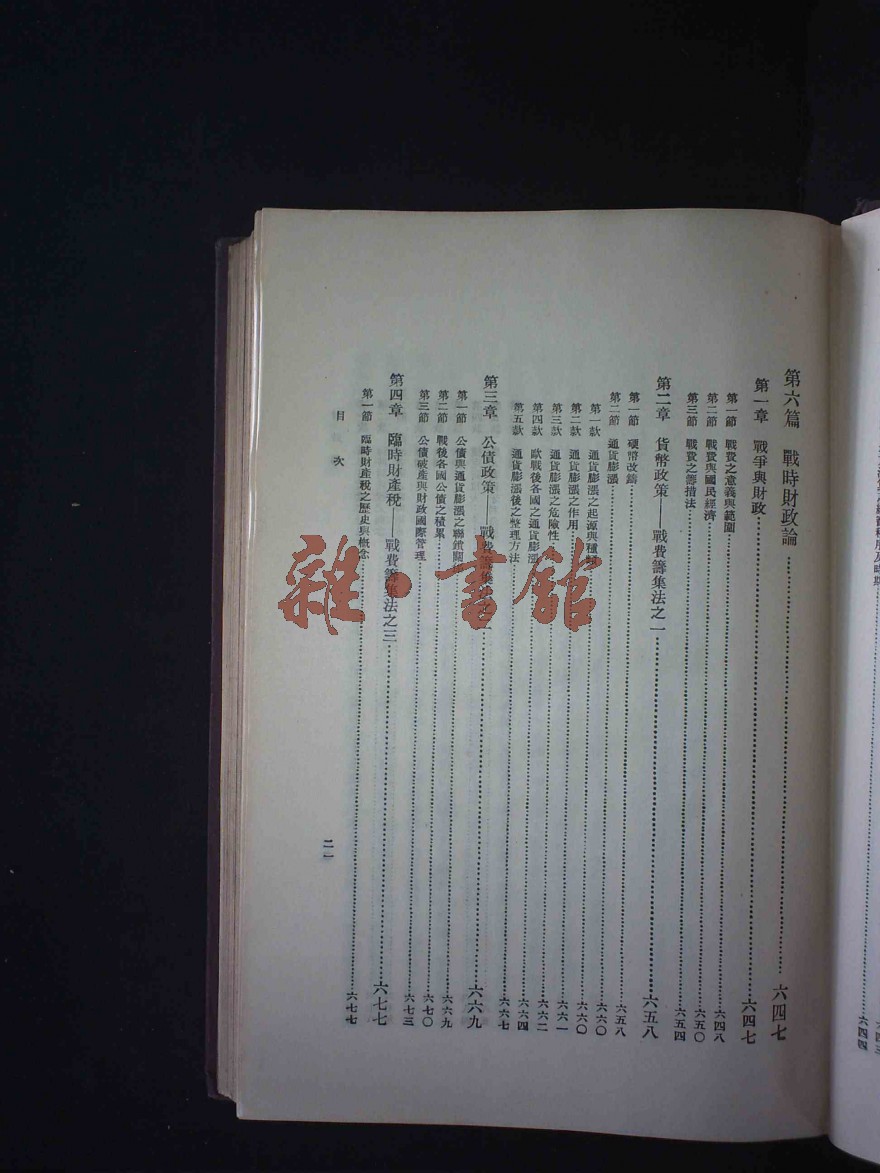 第六篇 戰時財政論……六四七
第一章 戰爭與財政……六四七
第一節 戰費之意義與範圍……六四八
第二節 戰費與國民經濟……六五〇
第三節 戰費之籌措法……六五四
第二章 貨幣政策——戰費籌集法之一……六五八
第一節 硬幣改鑄……六五八
第二節 通貨膨漲……六六〇
第一款 通貨膨漲之起源與種……六六〇
第二款 通貨膨漲之作用……六六一
第三款 通貨膨漲之危險性……六六二
第四款 歐戰後各國之通貨膨漲……六六四
第五款 通貨膨漲後之整理方法……六六七
第三章 公債政策——戰費籌集……六六九
第一節 公債與通貨膨漲之聯鎖……六六九
第二節 戰後各國公債之積累……六七〇
第三節 公債破產與財政國際管理……六七三
第四章 臨時財產稅——戰費籌集法之三……六七七
第一節 臨時財產稅之歷史與概念……六七七
目次
二一
雜·書館
六四四